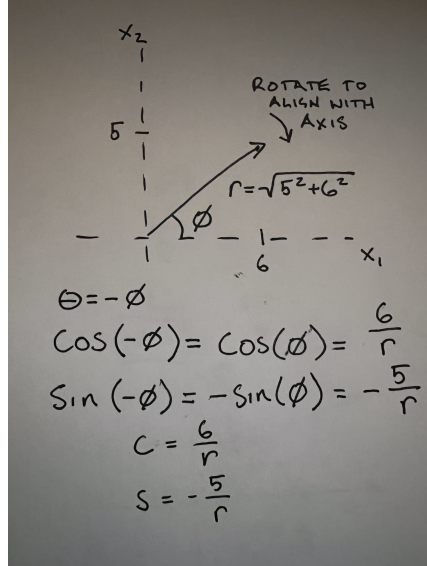 x₂
ROTATE TO
ALIGN WITH
AXIS
5
r=√5²+6²
Ø
6
x₁
Θ=-Ø
Cos(-Ø)= Cos(Ø)= 6/r
Sin (-Ø) = -Sin(Ø) = - 5/r
C = 6/r
S = - 5/r